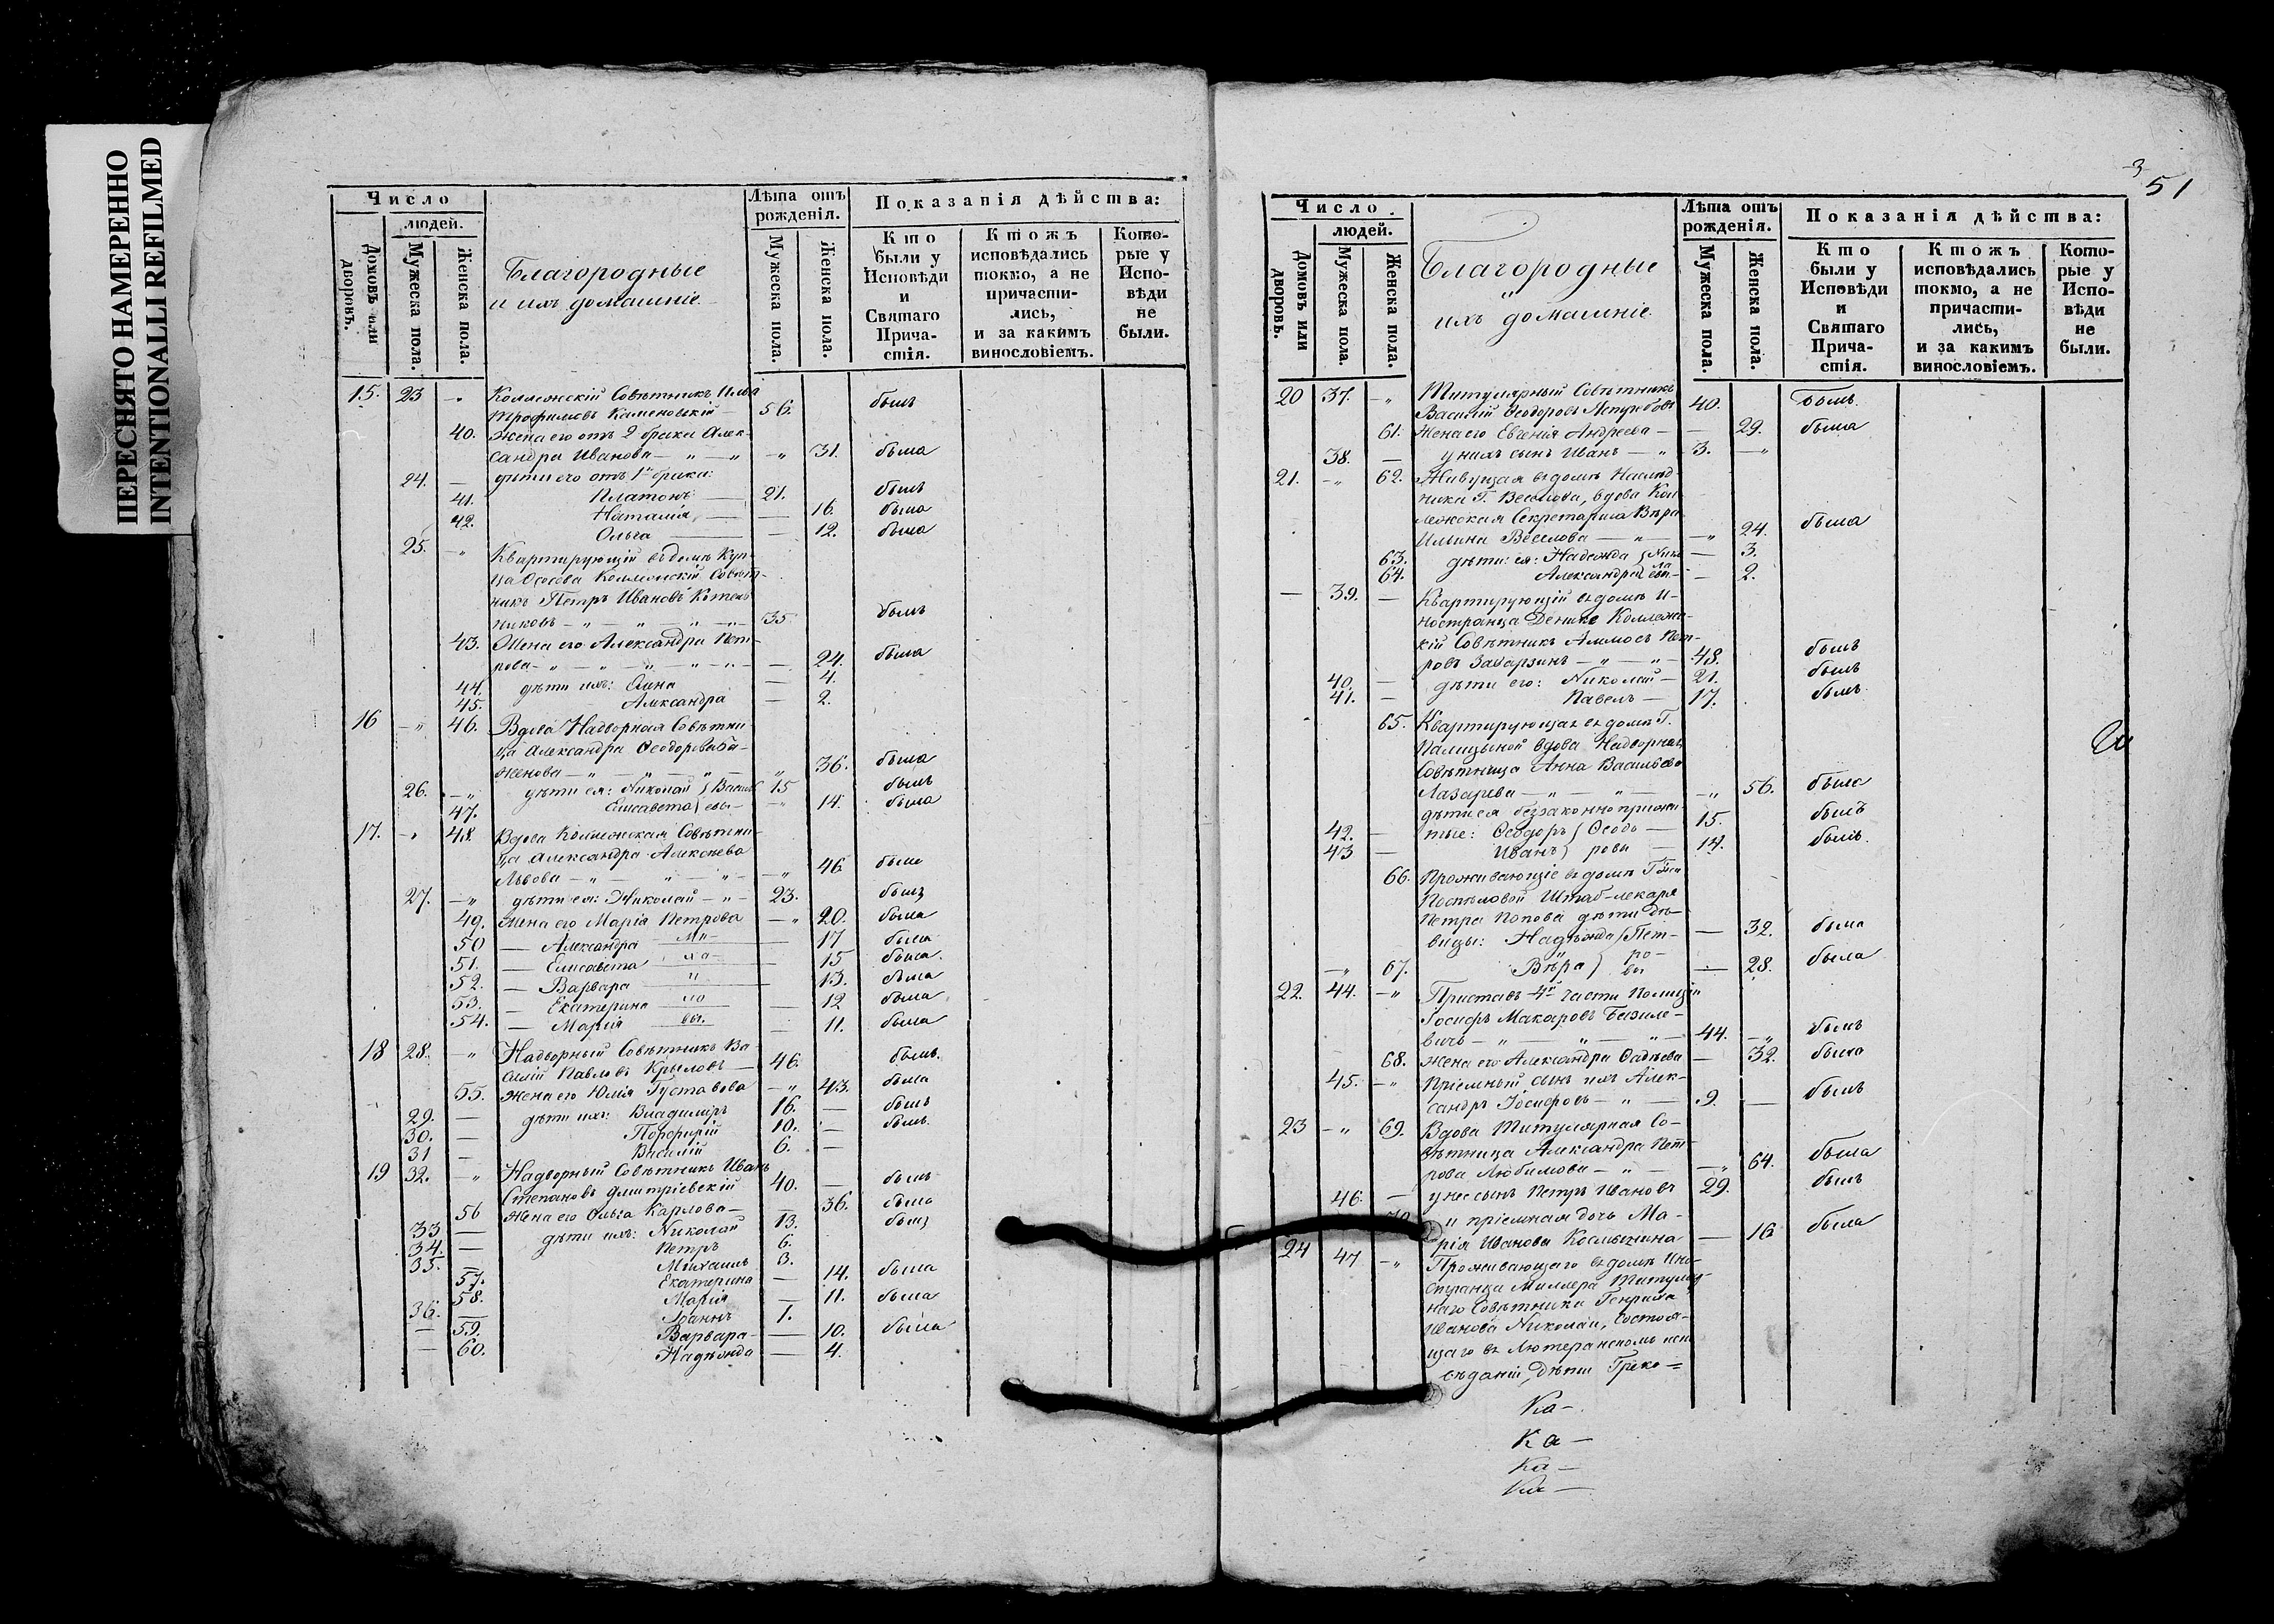 ПЕРЕСНЯТО НАМЕРЕННО
INTENTIONALLI REFILMED
Число
людей.
Домовъ или дворовъ.
Мужеска пола.
Женска пола.
Благородные
и ихъ домашніе
Лѣта отъ рожденія.
Мужеска пола.
Женска пола.
Показанія дѣйства:
Кто были у Исповѣди и Святаго Прича-стія.
Ктожъ исповѣдались токмо, а не причасти-лись, и за какимъ винословіемъ.
Кото-рые у Испо-вѣди не были.
15. 23 -„ Коллежскій Совѣтникъ Илья
Трофимовъ Каменовскій 56. былъ
40. Жена его отъ 2 брака Алек-
сандра Иванова — „ — „ -„ 31. была
24. — дѣти его отъ 1го брака:
41. Платонъ — 21. былъ
Наталія, — — 16. была
42. Ольга — — 12. была
25. -„ Квартирующій въ домѣ Куп-
ца Коллежскій Совѣт-
никъ Петръ Ивановъ Котель
никовъ - „ — „ — „ — 35 былъ
43. Жена его Александра Пет-
рова - „ — „ — „ — „ — — 24. была
44. дѣти ихъ: Анна — 4.
45. Александра — 2.
16 -„ 46. Вдова Надворная Совѣтни
ца Александра Ѳеодорова Ба-
женова — „ — „ — „ — „ 36. была
26. -„ дѣти ея: Николай } Василь 15 былъ
47. Елисавета } евы- -„ 14. была
17. -„ 48 Вдова Коллежская Совѣтни-
ца Александра Алексѣева
Львова — „ — „ — „ -„ 46 была
27. -„ дѣти ея: Николай — „ - 23. былъ
49. Жена его Марія Петрова -„ 20. была
50 — Александра Ми- — 17 была
51. — Елисавета ха- — 15 была.
52. — Варвара и — 13. была
53. — Екатерина ло — 12 была
54. — Марія вы. — 11. была
18 28. -„ Надворный Совѣтникъ Ва-
силій Павловъ Крыловъ — 46. былъ.
55. Жена его Юлія Густавова -„ 43. была
29. — дѣти ихъ: Владимiръ 16. — былъ
30. — Порфирій 10. — былъ.
31 — Василій 6. —
19 32. -„ Надворный Совѣтникъ Иванъ
Степановъ Дмитріевскій 40. — былъ
56 Жена его Ольга Карлова — — 36. была
33 — дѣти ихъ: Николай 13. былъ
34. — Петръ 6.
35. — Михаилъ 3.
57. Екатерина — 14. была
58. Марія — 11. была
36. — Іоаннъ 1.
— 59. Варвара — — 10. была
— 60. Надежда — 4.
3
51
Число
людей.
Домовъ или дворовъ.
Мужеска пола.
Женска пола.
Благородные
и
ихъ домашніе
Лѣта отъ рожденія.
Мужеска пола.
Женска пола.
Показанія дѣйства:
Кто были у Исповѣди и Святаго Прича-стія.
Ктожъ исповѣдались токмо, а не причасти-лись, и за какимъ винословіемъ.
Кото-рые у Испо-вѣди не были.
20 37. -„ Титулярный Совѣтникъ
Василій Ѳеодоровъ Ястребовъ 40. былъ.
61. Жена его Евгенія Андреева — — 29. была
38. — у нихъ сынъ Иванъ — „ 3. -„
21. -„ 62. Живущая въ домѣ Наслѣд-
ника Г. Веселова, вдова Кол
лежская Секретарша Вѣра
Ильина Веселова — „ — -„ 24. была
63. дѣти: ея: Надежда } Нико — 3.
64. Александра } ла евы- — 2.
— 39. — Квартирующій въ домѣ И-
ностранца Коллежс-
кій Совѣтникъ Пет-
ровъ Захарзинъ — „ — „ — 48. былъ
40. — дѣти его: Николай — 21. былъ
41. — Павелъ — 17. былъ.
65. Квартирующая въ домѣ Г.
Палицыной вдова Надворная
Совѣтница Анна Васильева
Лазарева — „ — „ — -„ 56. была
дѣти ея беззаконно прижи-
42. — тые: Ѳеодоръ } Ѳеодо — 15. былъ
43 — Иванъ } ровы — 14. былъ.
66. Проживающіе въ домѣ Гжи
Поспѣловой Штаб-лекаря
Петра Попова дѣти дѣ-
вицы: Надежда } Пет- — 32. была
-„ 67. Вѣра } ро- вы — 28. была
22. 44. -„ Приставъ 4й части Полиціи
Іосифъ Макаровъ Базиле-
вичъ — „ — „ — „ — 44. -„ былъ
68. Жена его Александра Ѳадѣева — 32. была
45. -„ Пріемный сынъ ихъ Алек-
сандръ Іосифовъ — „ — 9. — былъ
23 -„ 69. Вдова Титулярная Со-
вѣтница Александра Пет-
рова Любимова — „ — -„ 64. была
46. — у нее сынъ Петръ Ивановъ 29. былъ
70. и пріемная дочь Ма-
рія Иванова — 16 была
24 47 -„ Проживающаго въ домѣ Ино-
странца Миллера Титуляр-
наго Совѣтника Генриха
Иванова Николаи, состоя-
щаго въ Лютеранскомъ испо
вѣданіи, дѣти Греко-
Ка-
Ка-
Ка-
Ка-